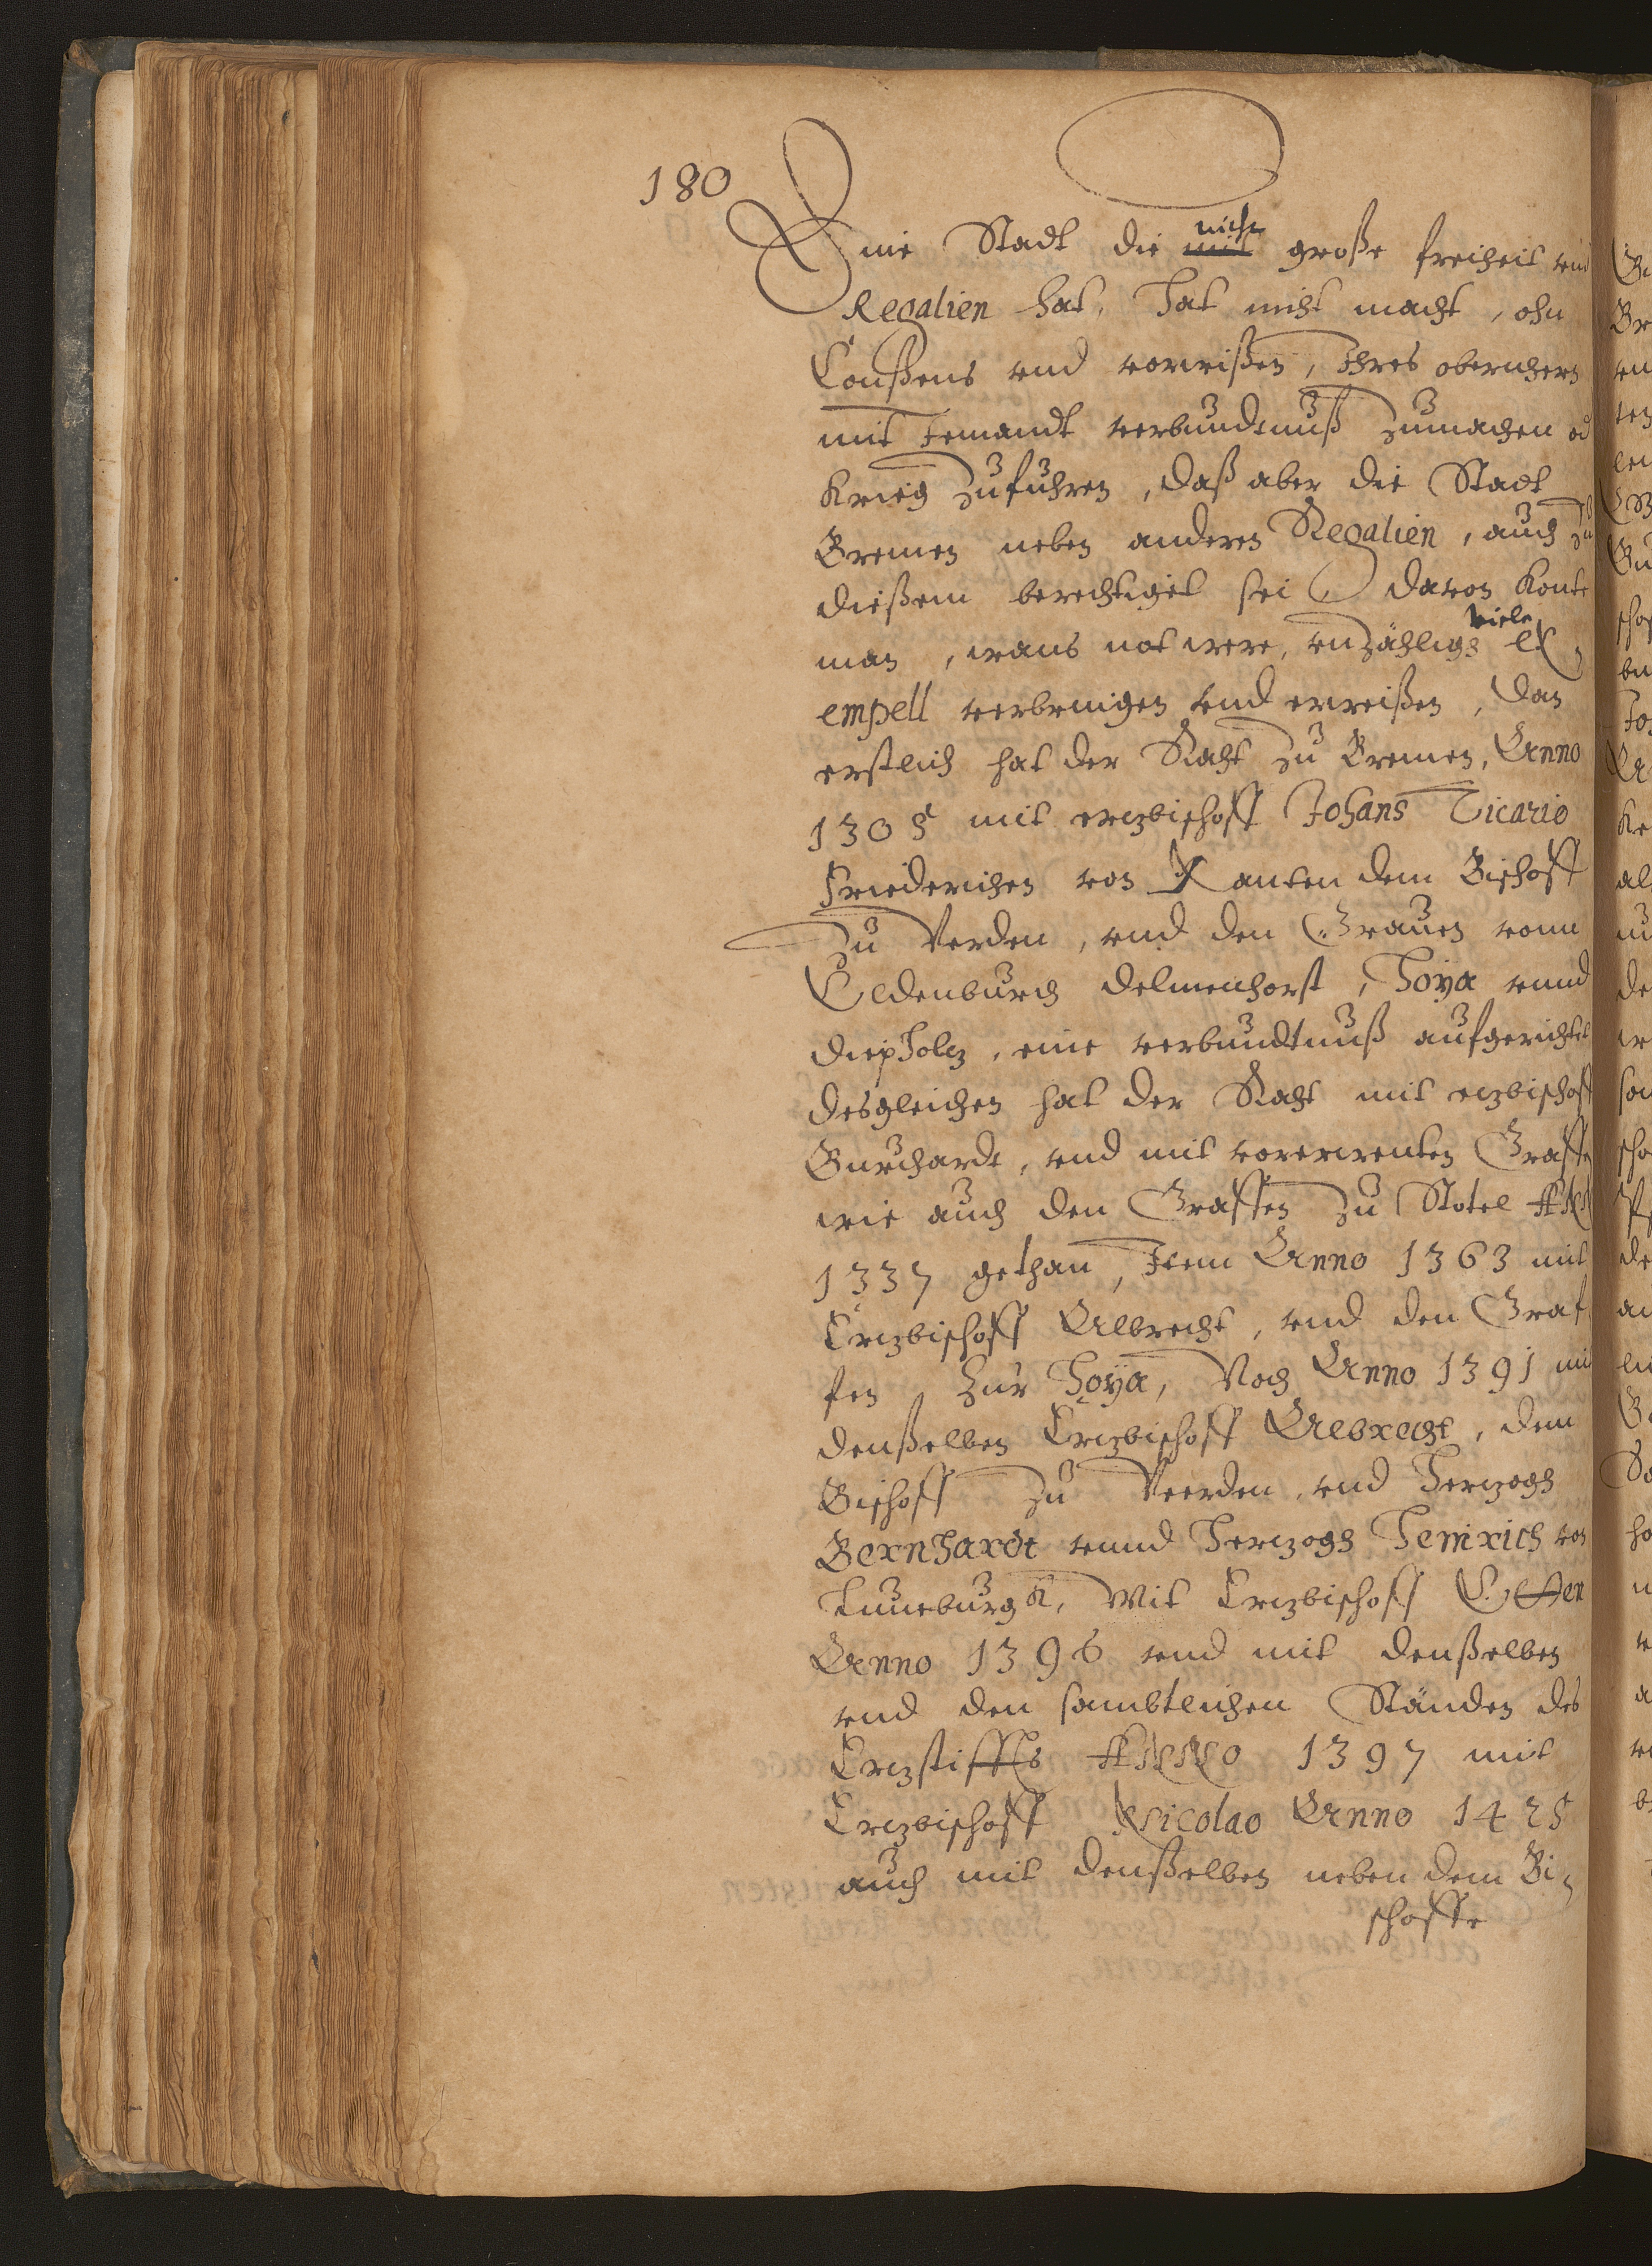 180
Eine Stadt die mit nicht große freiheit vnd
Regalien hat, hat nicht macht, ohn
Conßens vnd vorwißen, Ihres obernhern
mit Jemandt verbundtnuß zumachen od
Krieg zufuhren, daß aber die Stadt
Bremen neben anderen Regalien, auch zu
dießem berechtiget sei, davon konte
man, wans not were, vnzählige viele Ex,
empell verbringen vnd erweißen, dan
erstlich hat der Raht zu Bremen, Anno
1305 mit erczbischoff Johans Vicario
Friederichen von Xanten dem Bischoff
zu Verden, vnd den Grauen vonn
Oldenburch delmenhorst, Hoÿa vnnd
diepholcz, eine verbundtnuß aufgerichtet
desgleichen hat der Raht mit erczbischoff
Burchardt, vnd mit vorerwenten Graffen
wie auch den Graffen zu Stotel Anno
1337 gethan, Item Anno 1363 mit
Erczbischoff Albrecht, vnd den Graf
fen zur Hoÿa, Noch Anno 1391 mit
denßelben Erczbischoff Albrecht, dem
Bischoff zu Veerden, vnd Herczogh
Bernhardt vnnd Herczogh Heinrich von
Luneburgk, Mit Erczbischoff Otten
Anno 1396 vnd mit denßelben
vnd den sambtlichen Ständen des
Erczstiffts Anno 1397 mit
Erczbischoff Nicolao Anno 1425
auch mit denßelben neben dem Bi,
schoffe